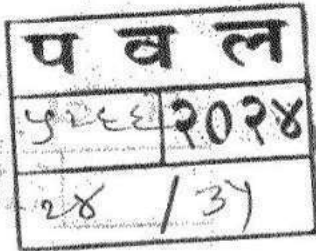 प व ल
५२६६ २०२४
२४ / ३५